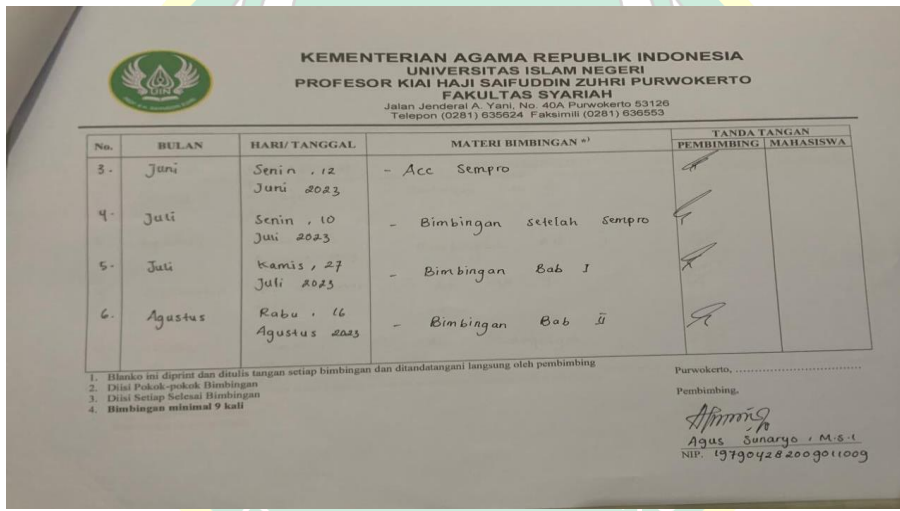 KEMENTERIAN AGAMA REPUBLIK INDONESIA
UNIVERSITAS ISLAM NEGERI
PROFESOR KIAI HAJI SAIFUDDIN ZUHRI PURWOKERTO
FAKULTAS SYARIAH
Jalan Jenderal A. Yani, No. 40A Purwokerto 53126
Telepon (0281) 635624 Faksimili (0281) 636553
UIN
No. BULAN HARI/ TANGGAL MATERI BIMBINGAN *) TANDA TANGAN
PEMBIMBING MAHASISWA
3. Juni Senin, 12 - Acc Sempro
Juni 2023
4. Juli Senin, 10 - Bimbingan setelah Sempro
Juli 2023
5. Juli Kamis, 27 - Bimbingan Bab I
Juli 2023
6. Agustus Rabu, 16 - Bimbingan Bab II
Agustus 2023
1. Blanko ini diprint dan ditulis tangan setiap bimbingan dan ditandatangani langsung oleh pembimbing
2. Diisi Pokok-pokok Bimbingan
3. Diisi Setiap Selesai Bimbingan
4. Bimbingan minimal 9 kali
Purwokerto, ................................
Pembimbing,
Agus Sunaryo, M.S.I
NIP. 197904282009011009